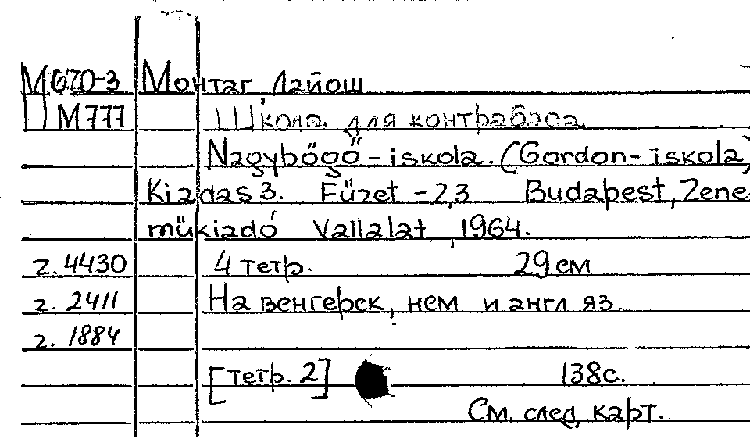 М670-3 Монтаг, Лайош
М777 Школа для контрабаса
Nagybőgő - iskola. (Gordon-iskola)
Kiadas 3. Füzet - 2,3 Budapest, Zene-
műkiadó Vallalat, 1964.
г. 4430 4 тетр. 29 см
г. 2411 На венгерск, нем и англ яз
г. 1884
[тетр. 2] 138с.
См. след. карт.